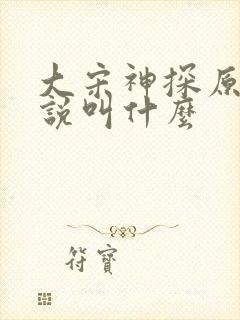 大宋神探原
說叫什麼
符寶